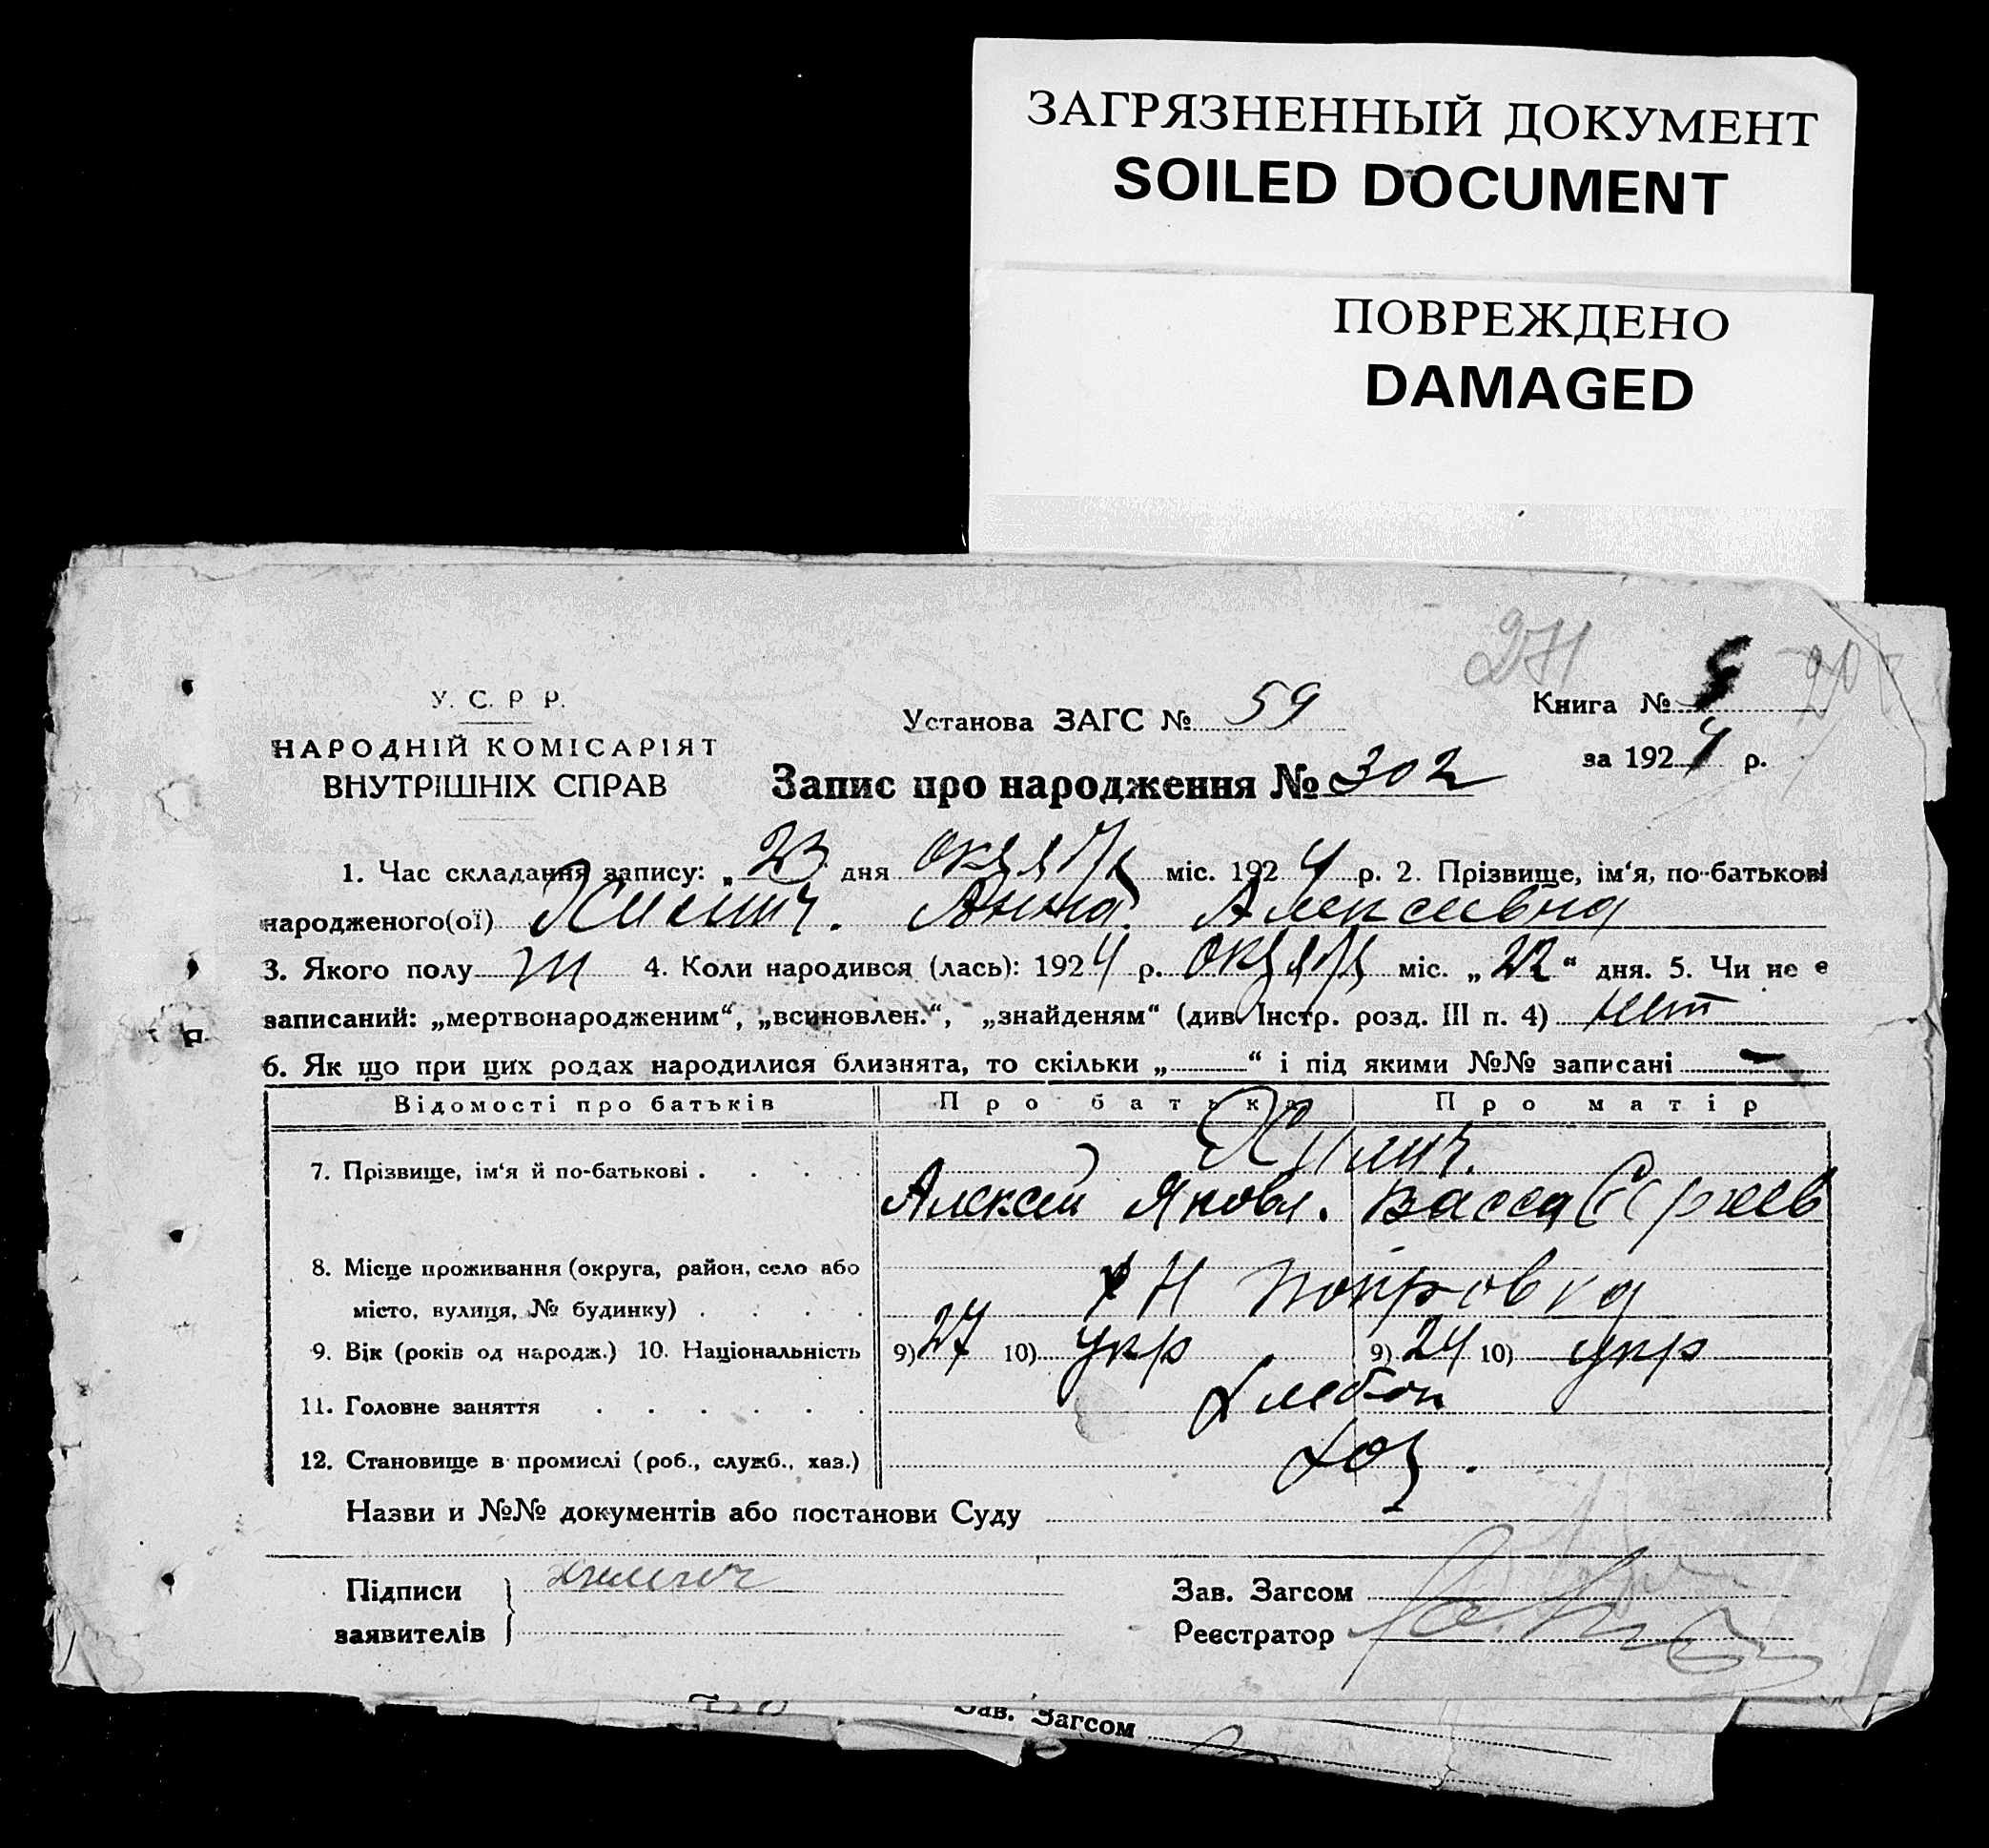 ЗАГРЯЗНЕННЫЙ ДОКУМЕНТ
SOILED DOCUMENT
ПОВРЕЖДЕНО
DAMAGED
271
У. С. Р Р.
НАРОДНІЙ КОМІСАРІЯТ
ВНУТРІШНІХ СПРАВ
Установа ЗАГС № 59
Книга №
за 1924 р.
Запис про народження № 302
1. Час складання запису: „23 дня октяб міс. 1924 р. 2. Прізвище, ім‘я, по-батькові
народженого(ої) Хилич. Анна Алексеевна
3. Якого полу ж 4. Коли народився (лась): 1924 р. октяб міс. „22“ дня. 5. Чи не є
записаний: „мертвонародженим“, „всиновлен.“, „знайденям“ (див. Інстр. розд. III п. 4) нет
6. Як що при цих родах народилися близнята, то скільки „ “ і під якими №№ записані —
Відомості про батьків Про батька Про матір
7. Прізвище, ім‘я й по-батькові . . . . Хилич.
Алексей Яковл. Васса Сергеев
8. Місце проживання (округа, район, село або
місто, вулиця, № будинку) . . . . Н Покровка
9. Вік (років од народж.) 10. Національність 9) 27 10) укр 9) 24 10) укр
11. Головне заняття . . . . . . хлебоп
12. Становище в промислі (роб., служб., хаз.) хоз.
Назви и №№ документів або постанови Суду
Підписи Хилич Зав. Загсом
заявителів Реєстратор
Зав. Загсом